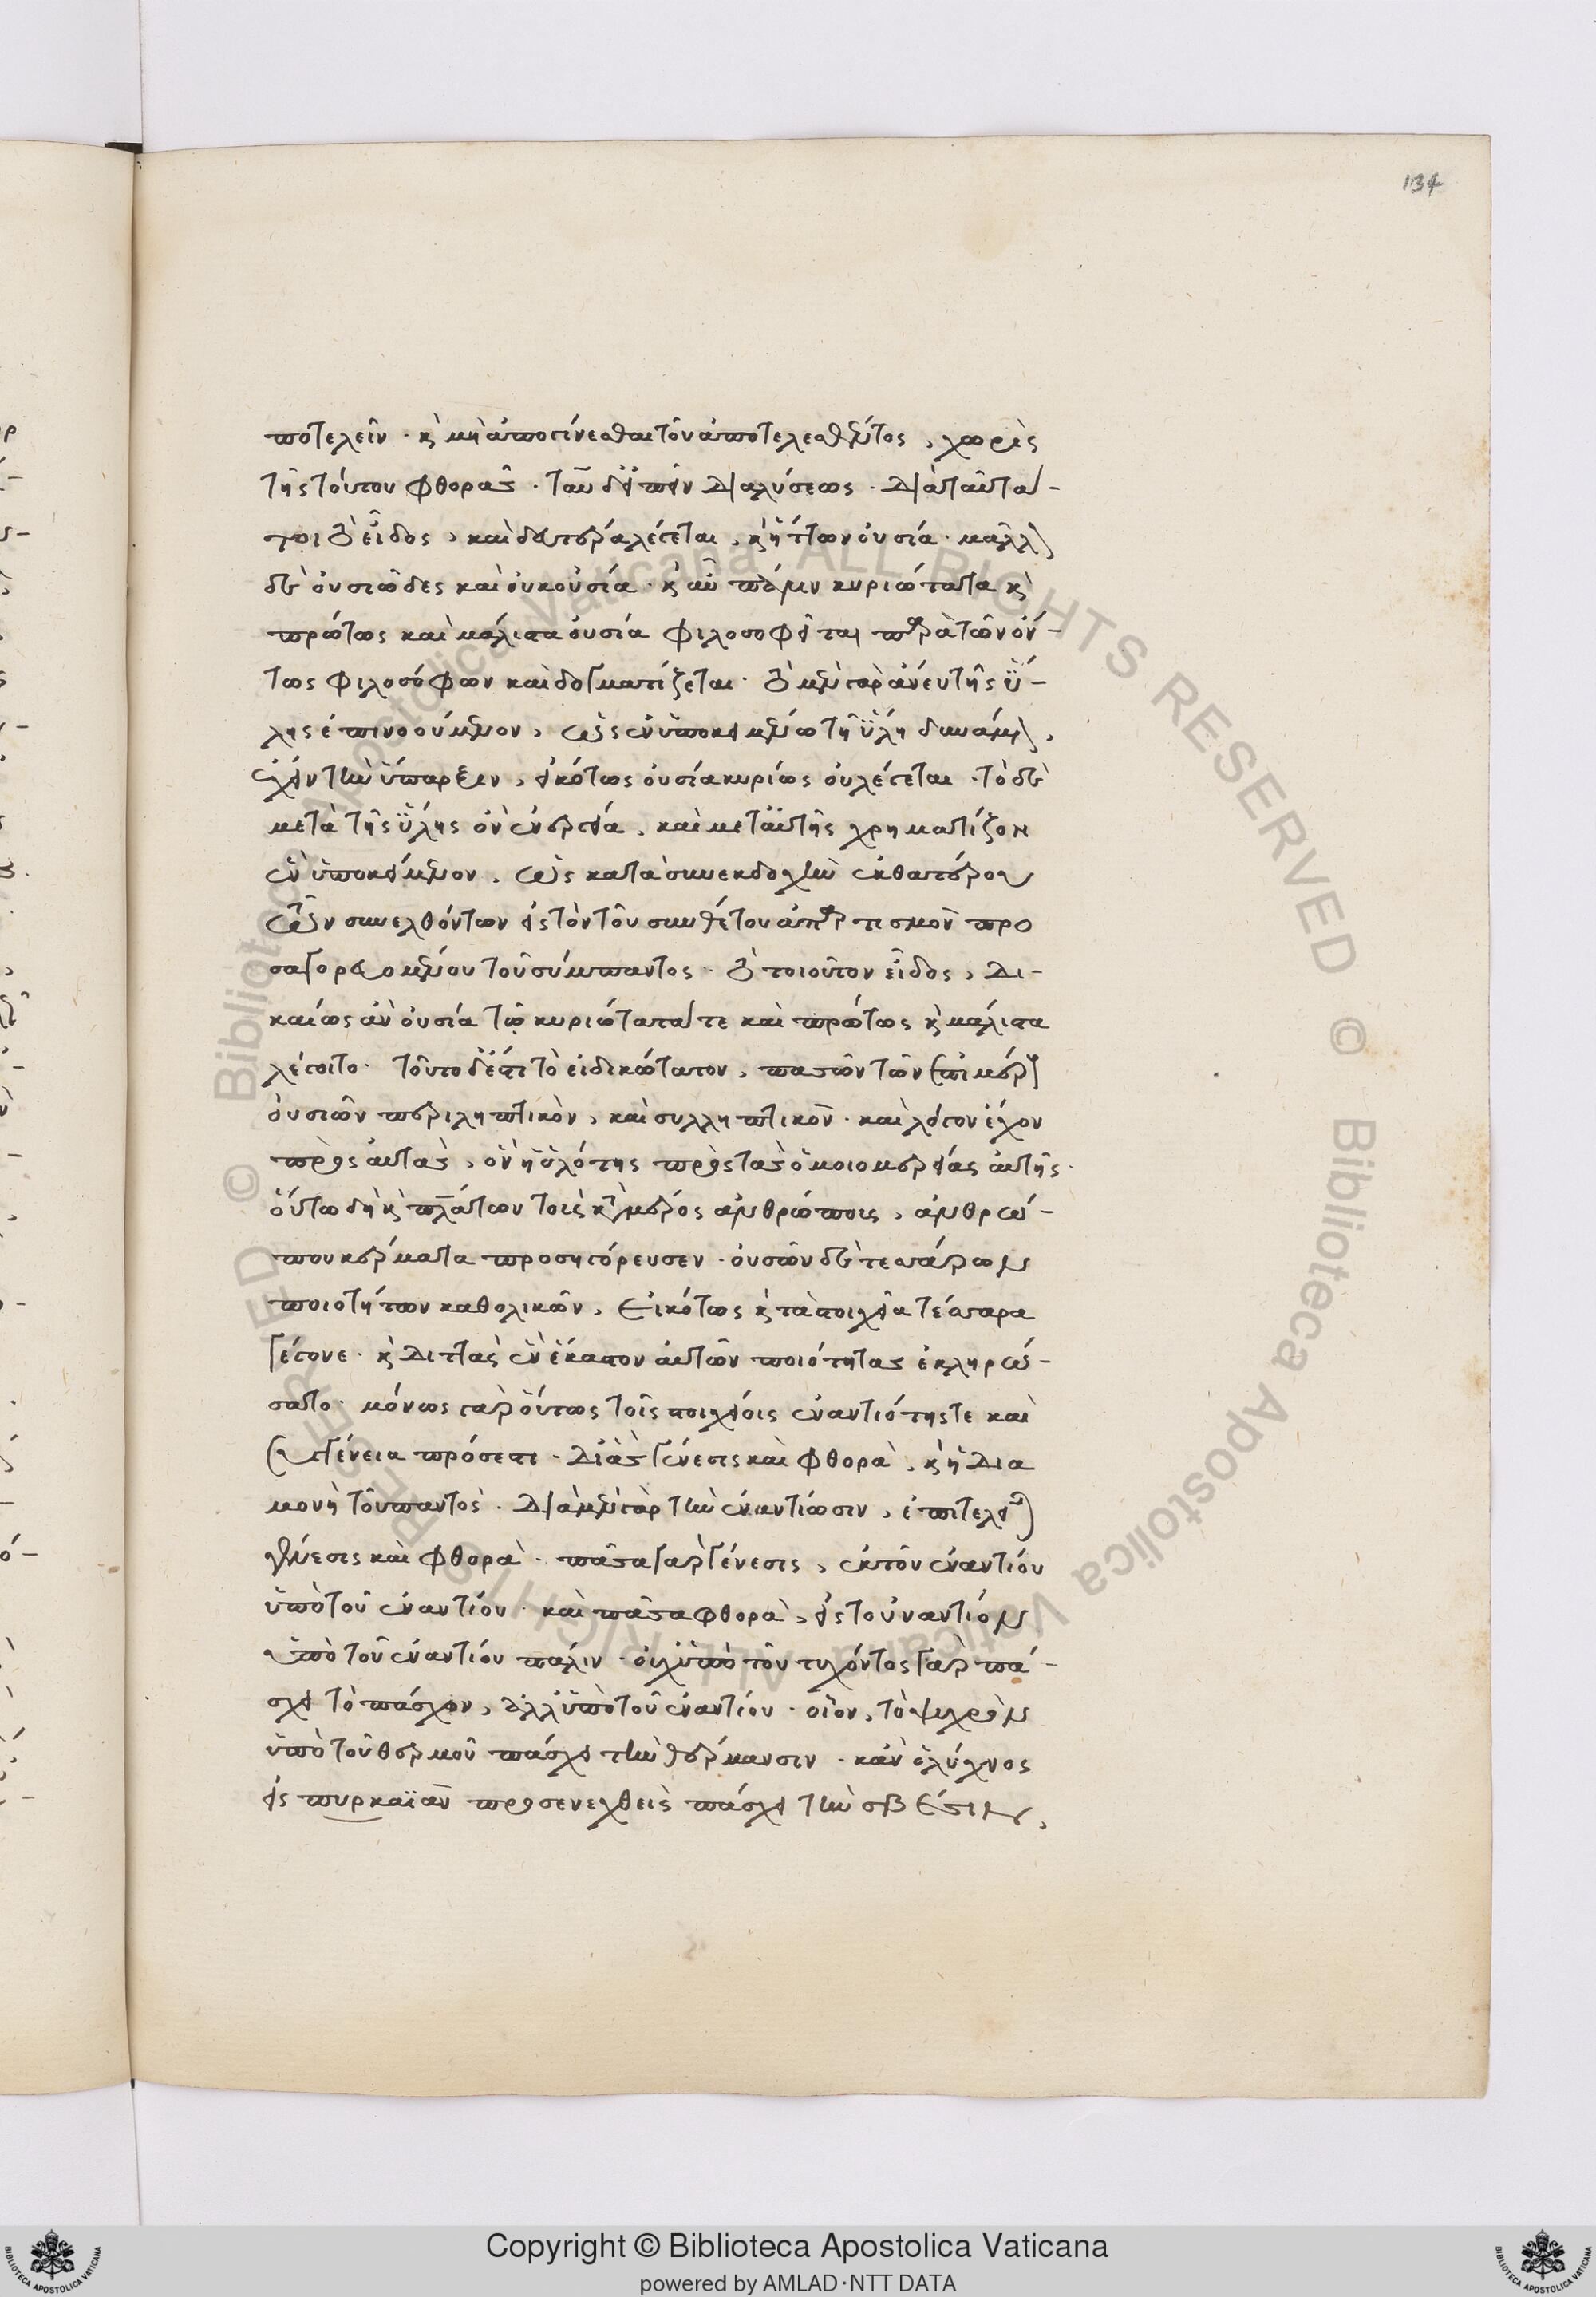 134
ποτελεῖν · κ̀ μὴ ἀπογίνεσθαι τοῦ ἀποτελεσθέντος, χωρὶς
τῆς τούτου φθορᾶς · ταὐ δ' εἰπεῖν διαλύσεως · διὰ ταῦτα
τοι τὸ εἶδος, καὶ δευτέρα λέγεται, κ̀ ἥττων οὐσία · μᾶλλ
δὲ οὐσιῶδες καὶ οὐκ οὐσία · κ̀ αὖ πάλιν κυριώτατα κ̀
πρώτως καὶ μάλιστα οὐσία φιλοσοφεῖται παρὰ τῶν ὄν-
τως φιλοσόφων καὶ δογματίζεται · τὸ μὲν γὰρ ἄνευ τῆς ὕ-
λης ἐπινοούμενον, ὡς ἐν ὑποκειμένῳ τῇ ὕλῃ δυνάμει,
ἔχειν τὴν ὕπαρξιν, εἰκότως οὐσία κυρίως οὐ λέγεται · τὸ δὲ
μετὰ τῆς ὕλης ὂν ἐνεργείᾳ, καὶ μετ' αὐτῆς χρηματίζον
ἓν ὑποκείμενον, ὡς κατὰ συνεκδοχὴν ἐκ θατέρου
τῶν συνελθόντων εἰς τὸν τοῦ συνθέτου ἀπαρτισμὸν προ
σαγορευομένου τοῦ σύμπαντος · τὸ τοιοῦτον εἶδος, δι-
καίως ἂν οὐσία τῷ κυριώτατά τε καὶ πρώτως κ̀ μάλιστα
λέγοιτο · τοῦτο δέ ἐστι τὸ εἰδικώτατον, πασῶν τῶν ἐπὶ μέρους
οὐσιῶν περιληπτικὸν, καὶ συλληπτικὸν · καὶ λόγον ἔχον
πρὸς αὐτὰς, ὃν ἡ ὁλότης πρὸς τὰς ὁμοιομερείας αὐτῆς ·
οὕτω δὴ κ̀ πλάτων τοὺς κατὰ μέρος ἀνθρώπους, ἀνθρώ-
που κέρματα προσηγόρευσεν · οὐσῶν δὲ τεσσάρων
ποιοτήτων καθολικῶν, εἰκότως κ̀ τὰ στοιχεῖα τέσσαρα
γέγονε · κ̀ διττὰς ἓν ἕκαστον αὐτῶν ποιότητας ἐκληρώ-
σατο · μόνως γὰρ οὕτως τοῖς στοιχείοις ἐναντιότης τε καὶ
συγγένεια πρόσεστι · δι' ἃς γένεσις καὶ φθορὰ, κ̀ ἡ δια
μονὴ τοῦ παντὸς · διὰ μὲν γὰρ τὴν ἐναντίωσιν, ἐπιτελεῖται
γένεσις καὶ φθορὰ · πᾶσα γὰρ γένεσις, ἐκ τοῦ ἐναντίου
ὑπὸ τοῦ ἐναντίου · καὶ πᾶσα φθορὰ, εἰς τοὐναντίον
ὑπὸ τοῦ ἐναντίου πάλιν · οὐχ ὑπὸ τοῦ τυχόντος γὰρ πά-
σχει τὸ πάσχον, ἀλλ' ὑπὸ τοῦ ἐναντίου · οἷον, τὸ ψυχρὸν
ὑπὸ τοῦ θερμοῦ πάσχει τὴν θέρμανσιν · κἂν ὁ λύχνος
εἰς πυρκαϊὰν προσενεχθεὶς πάσχει τὴν σβέσιν,
Copyright © Biblioteca Apostolica Vaticana
powered by AMLAD·NTT DATA